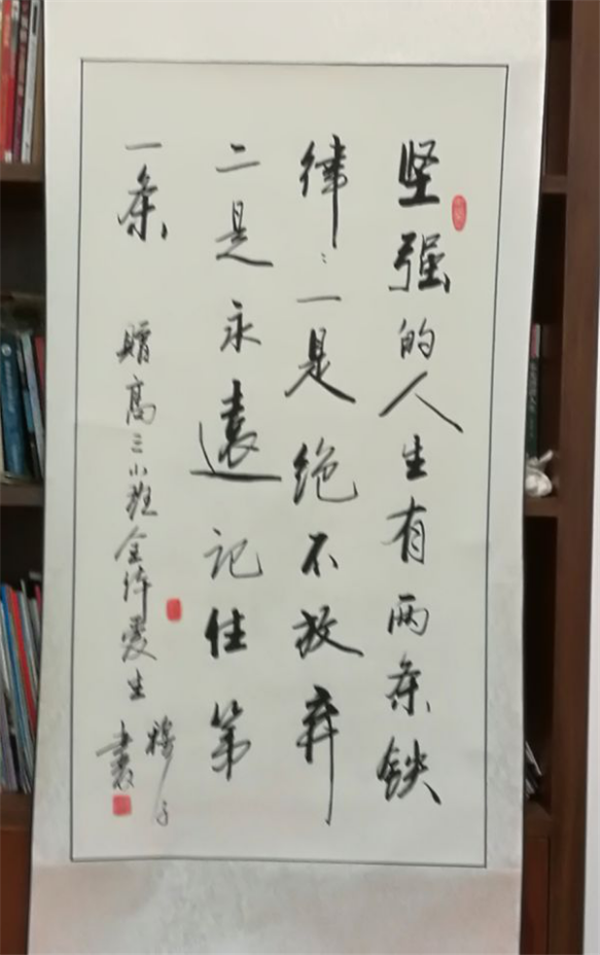 坚强的人生有两条铁
律：一是绝不放弃
二是永远记住第
一条
赠高三小班全体爱生
书